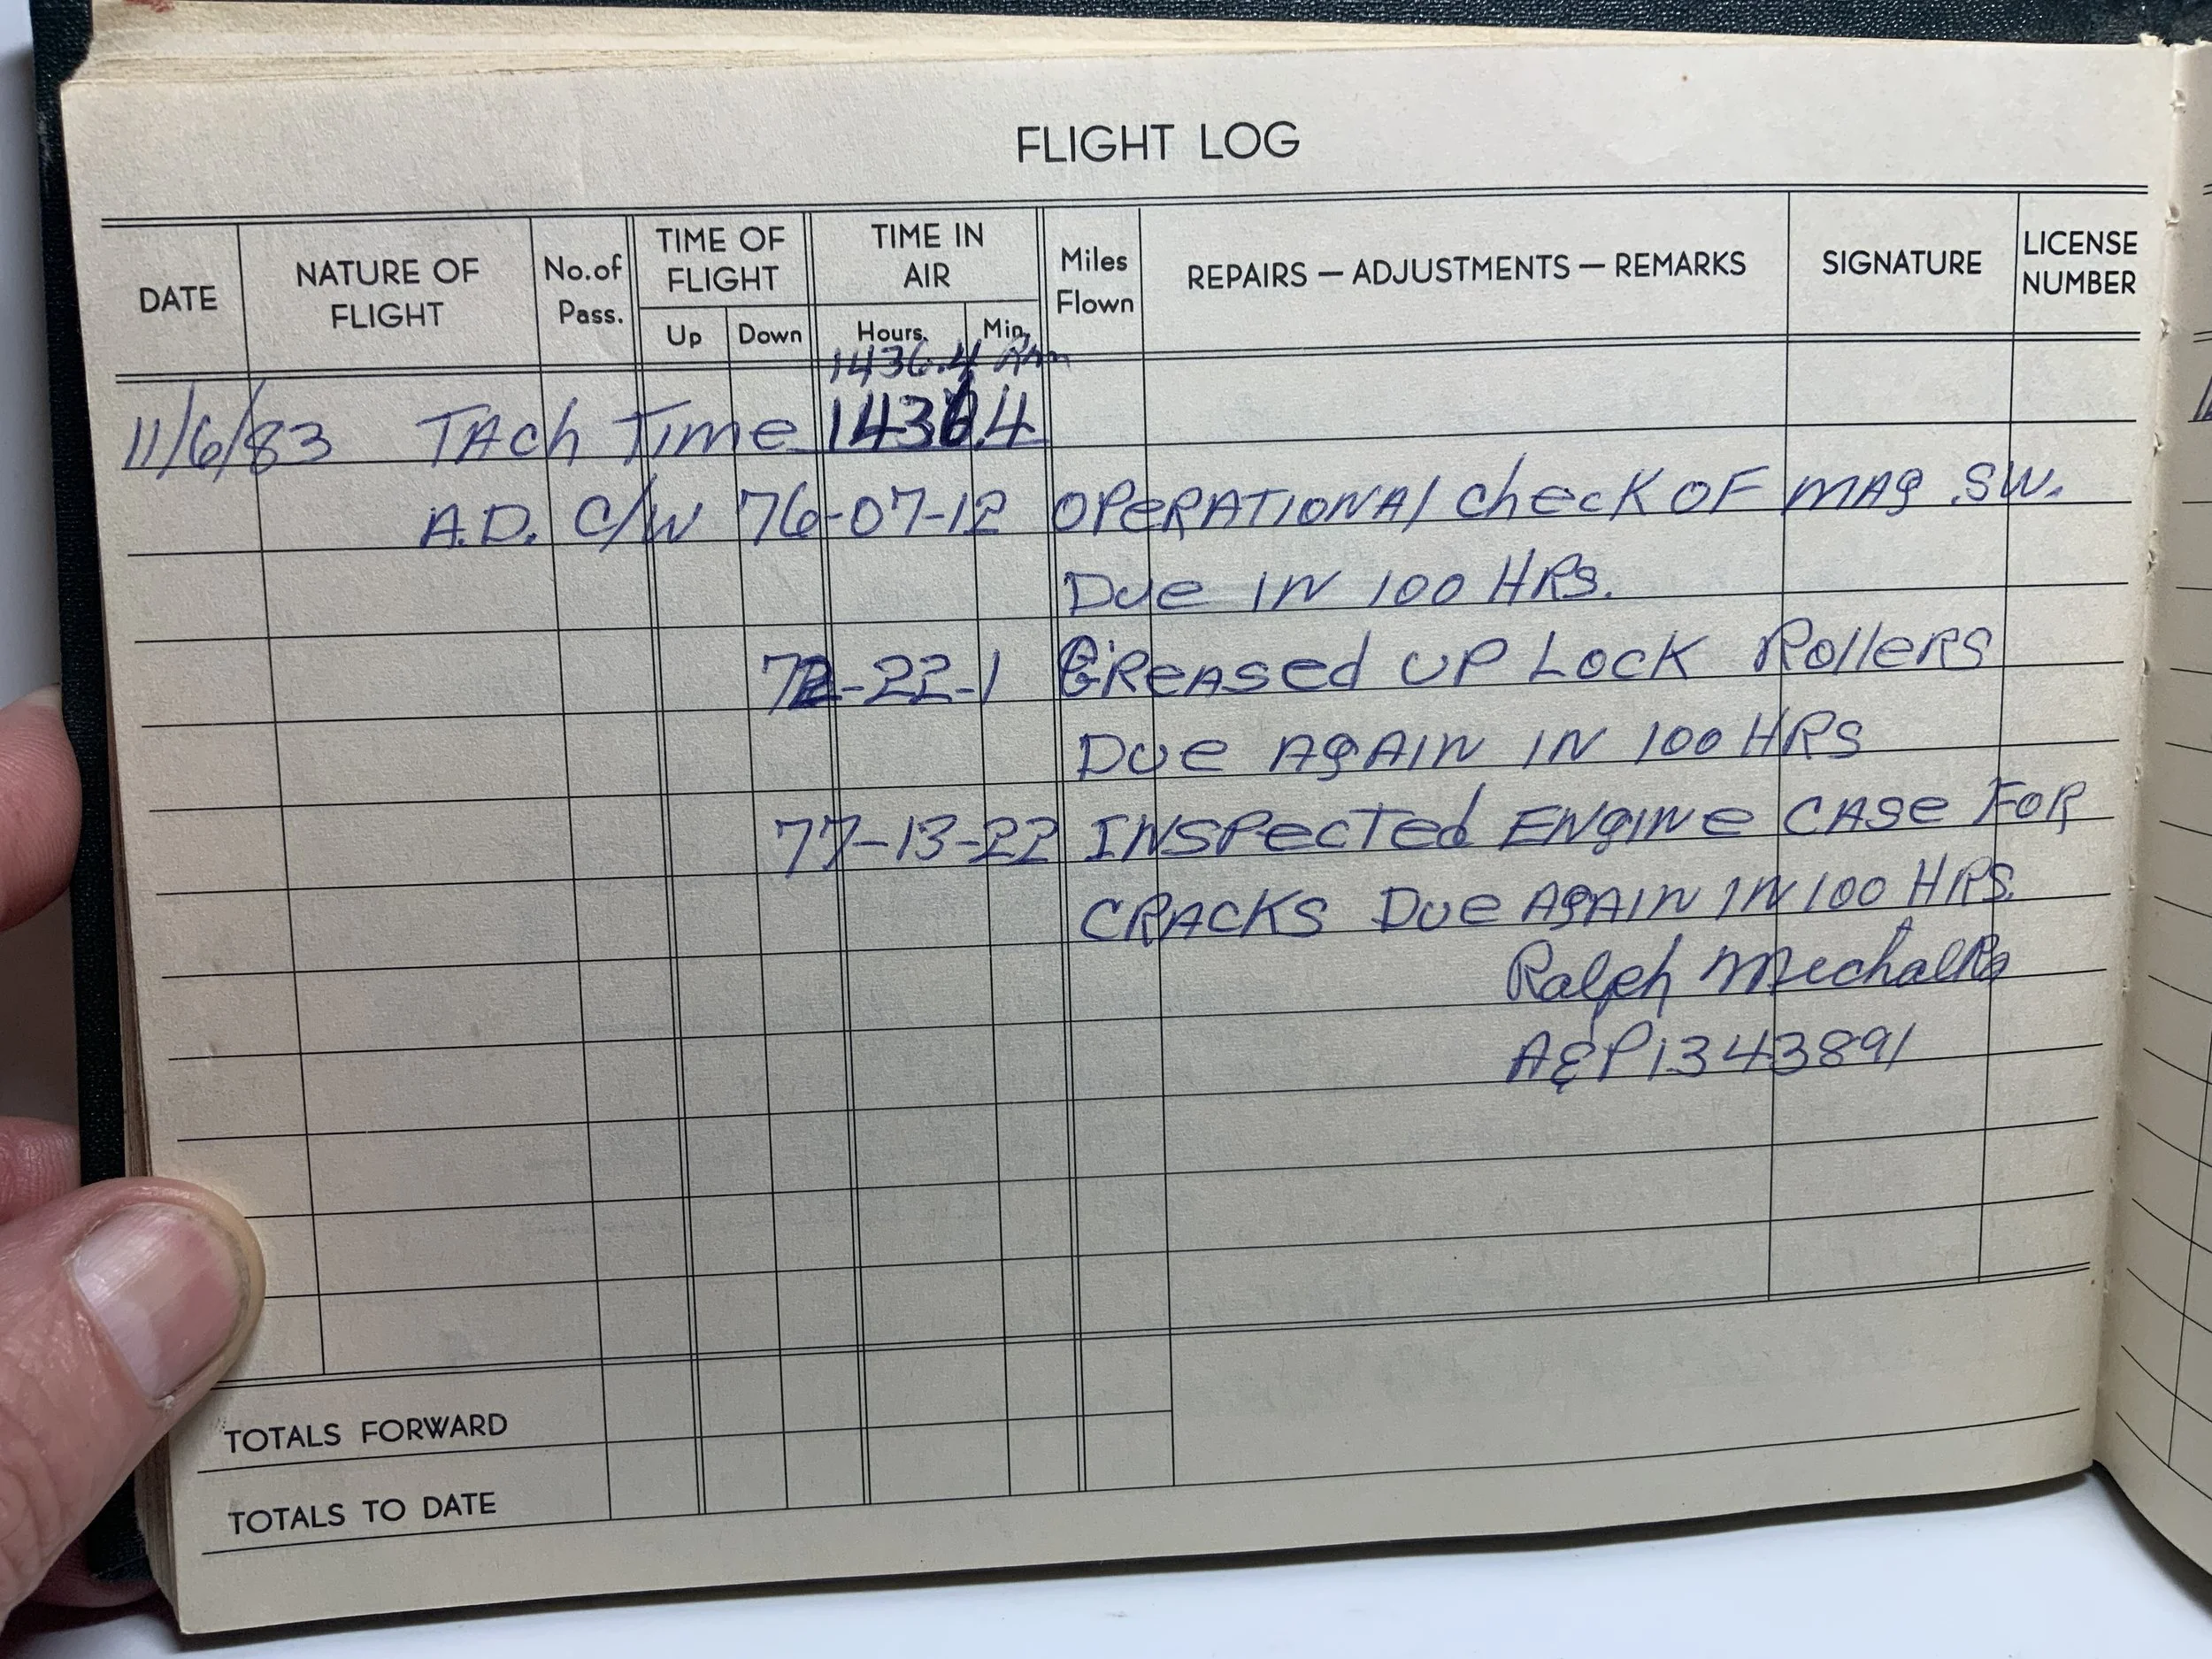 FLIGHT LOG
DATE
NATURE OF FLIGHT
No. of Pass.
TIME OF FLIGHT
Up
Down
TIME IN AIR
Hours.
Min.
Miles Flown
REPAIRS — ADJUSTMENTS — REMARKS
SIGNATURE
LICENSE NUMBER
1436.4
11/6/83 TAch Time 1436.4
A.D. C/W 76-07-12 OPERATIONAl check OF MAg SW.
Due IN 100 HRs.
72-22-1 GReAsed UP Lock Rollers
Due AgAIN IN 100 HRs
77-13-22 INSPecTed ENgINe CASe FOR
CRACKS Due AgAIN IN 100 HRS.
Ralph Mechalko
A&P1343891
TOTALS FORWARD
TOTALS TO DATE